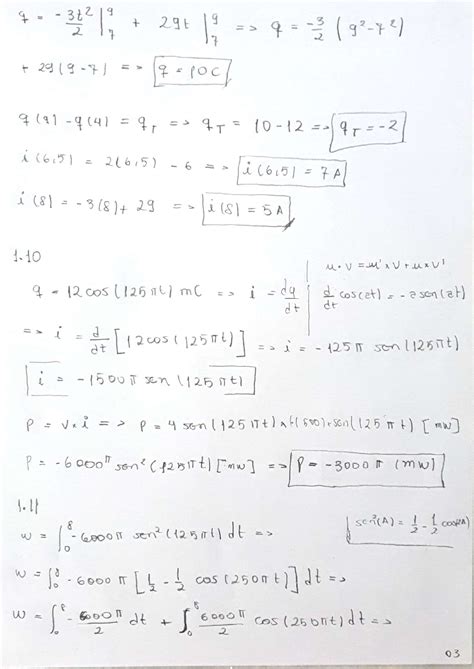 q = -3t²/2 |⁹₇ + 29t |⁹₇ => q = -3/2 (9²-7²)
+ 29(9-7) => q = 10C
q(9) - q(4) = qT => qT = 10-12 => qT = -2
i(6,5) = 2(6,5) - 6 => i(6,5) = 7A
i(8) = -3(8) + 29 => i(8) = 5A
1.10
u·v = u'×v + u×v'
q = 12cos(125πt) mC => i = dq/dt
d/dt cos(zt) = -z sen(zt)
=> i = d/dt [12cos(125πt)] => i = -125π sen(125πt)
i = -1500π sen(125πt)
P = v×i => P = 4 sen(125πt) × (-1500) · sen(125πt) [mW]
P = -6000π sen²(125πt) [mW] => P = -3000π (mW)
1.11
sen²(A) = 1/2 - 1/2 cos(2A)
w = ∫₀⁸ -6000π sen²(125πt) dt =>
w = ∫₀⁸ -6000π [1/2 - 1/2 cos(250πt)] dt =>
w = ∫₀⁸ -6000π/2 dt + ∫₀⁸ 6000π/2 cos(250πt) dt =>
03